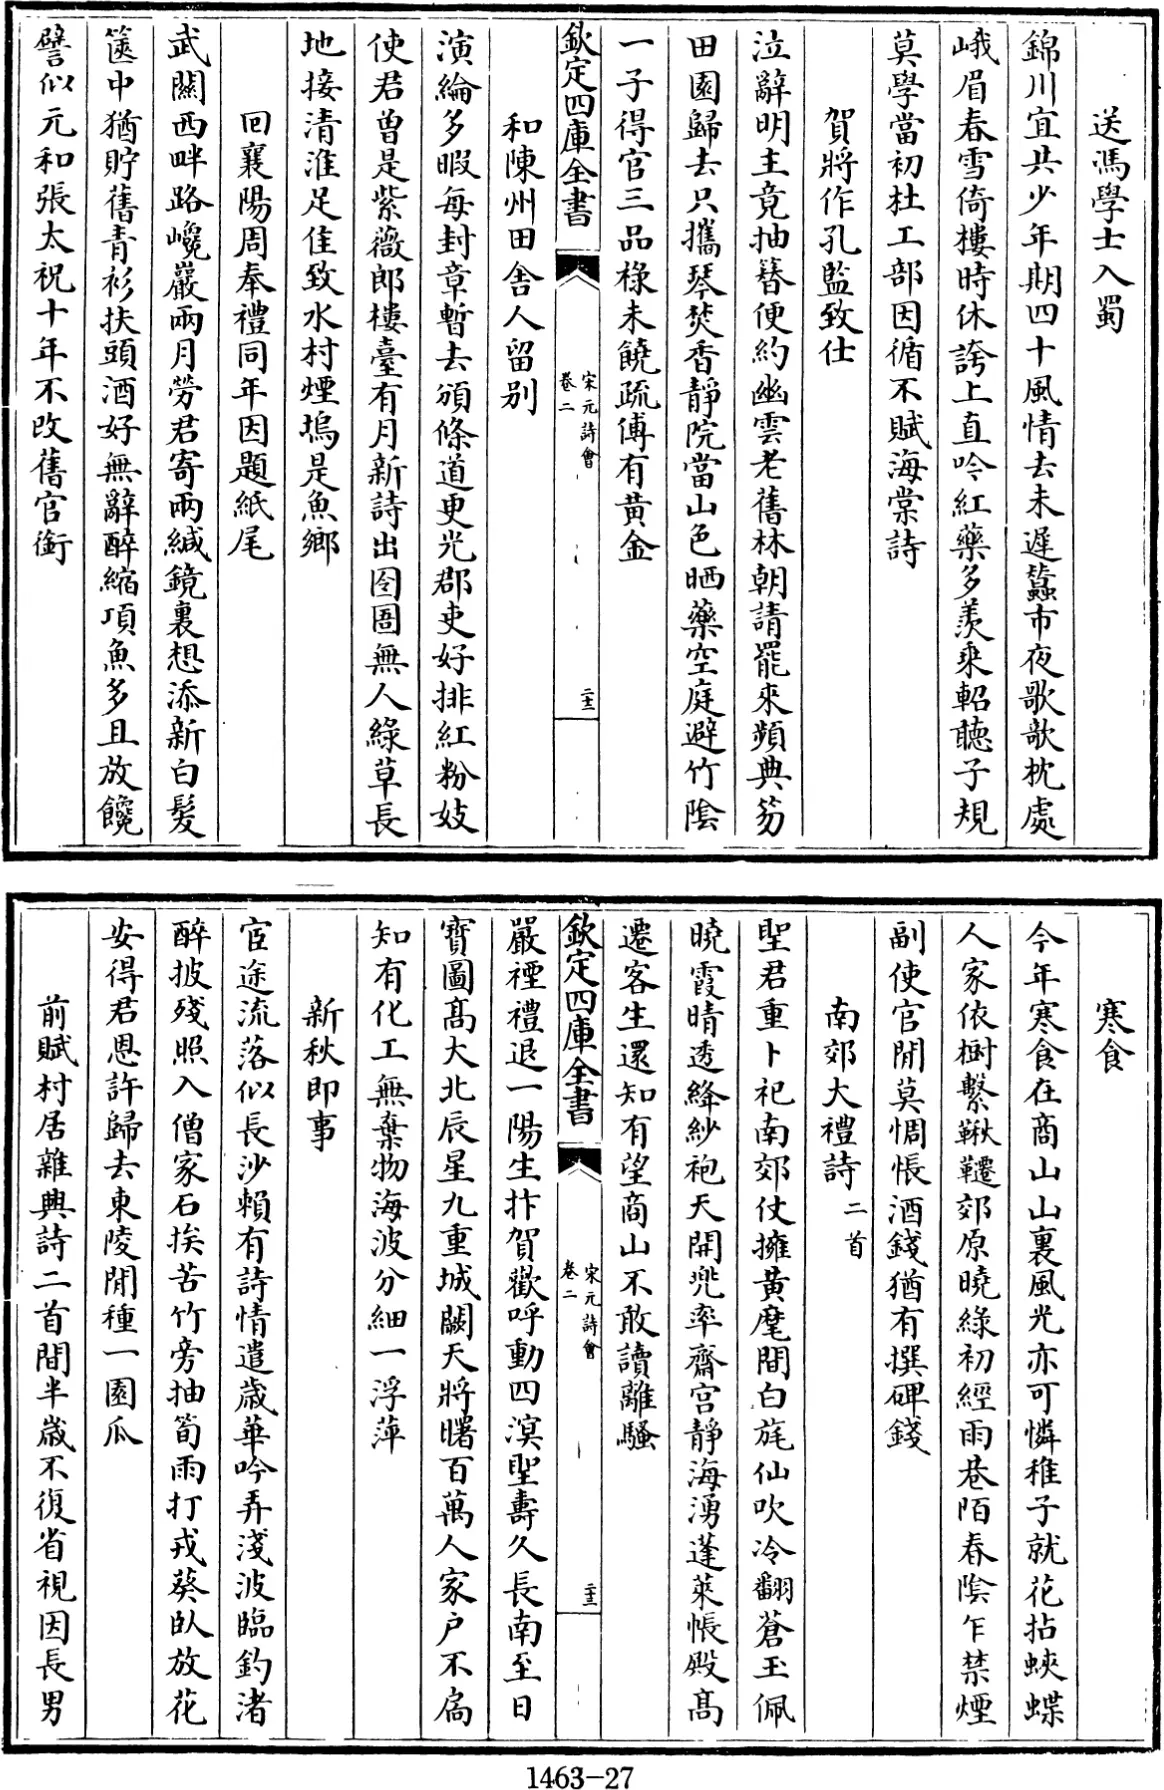 送馮學士入蜀
錦川宜共少年期四十風情去未遲蠶市夜歌欹枕處
峨眉春雪倚樓時休誇上直吟紅藥多羨乘軺聽子規
莫學當初杜工部因循不賦海棠詩
賀將作孔監致仕
泣辭明主竟抽簪便約幽雲老舊林朝請罷來頻典笏
田園歸去只攜琴焚香靜院當山色晒藥空庭避竹陰
一子得官三品祿未饒疏傅有黃金
欽定四庫全書
宋元詩會
卷二
二十二
和陳州田舍人留別
演綸多暇每封章暫去頒條道更光郡吏好排紅粉妓
使君曾是紫薇郎樓臺有月新詩出囹圄無人綠草長
地接清淮足佳致水村煙塢是魚鄉
回襄陽周奉禮同年因題紙尾
武關西畔路巉巖兩月勞君寄兩緘鏡裏想添新白髮
篋中猶貯舊青衫扶頭酒好無辭醉縮項魚多且放饞
譬似元和張太祝十年不改舊官銜
寒食
今年寒食在商山山裏風光亦可憐稚子就花拈蛺蝶
人家依樹繫鞦韆郊原曉綠初經雨巷陌春陰乍禁煙
副使官閒莫惆悵酒錢猶有撰碑錢
南郊大禮詩二首
聖君重卜祀南郊仗擁黃麾間白旄仙吹冷翻蒼玉佩
曉霞晴透絳紗袍天開兜率齋宮靜海湧蓬萊帳殿高
遷客生還知有望商山不敢讀離騷
欽定四庫全書
宋元詩會
卷二
二十三
嚴禋禮退一陽生抃賀歡呼動四溟聖壽久長南至日
寶圖高大北辰星九重城闕天將曙百萬人家户不扃
知有化工無棄物海波分細一浮萍
新秋即事
宦途流落似長沙賴有詩情遣歲華吟弄淺波臨釣渚
醉披殘照入僧家石挨苦竹旁抽筍雨打戎葵臥放花
安得君恩許歸去東陵閒種一園瓜
前賦村居雜興詩二首間半歲不復省視因長男
1463-27